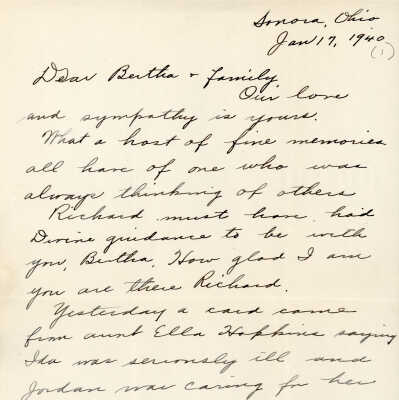 Sonora, Ohio
Jan 17, 1940
(1)
Dear Bertha & family
Our love
and sympathy is yours.
What a host of fine memories
all have of one who was
always thinking of others
Richard must have had
Divine guidance to be with
you, Bertha. How glad I am
you are there Richard.
Yesterday a card came
from aunt Ella Hopkins saying
Ida was seriously ill and
Jordan was caring for her